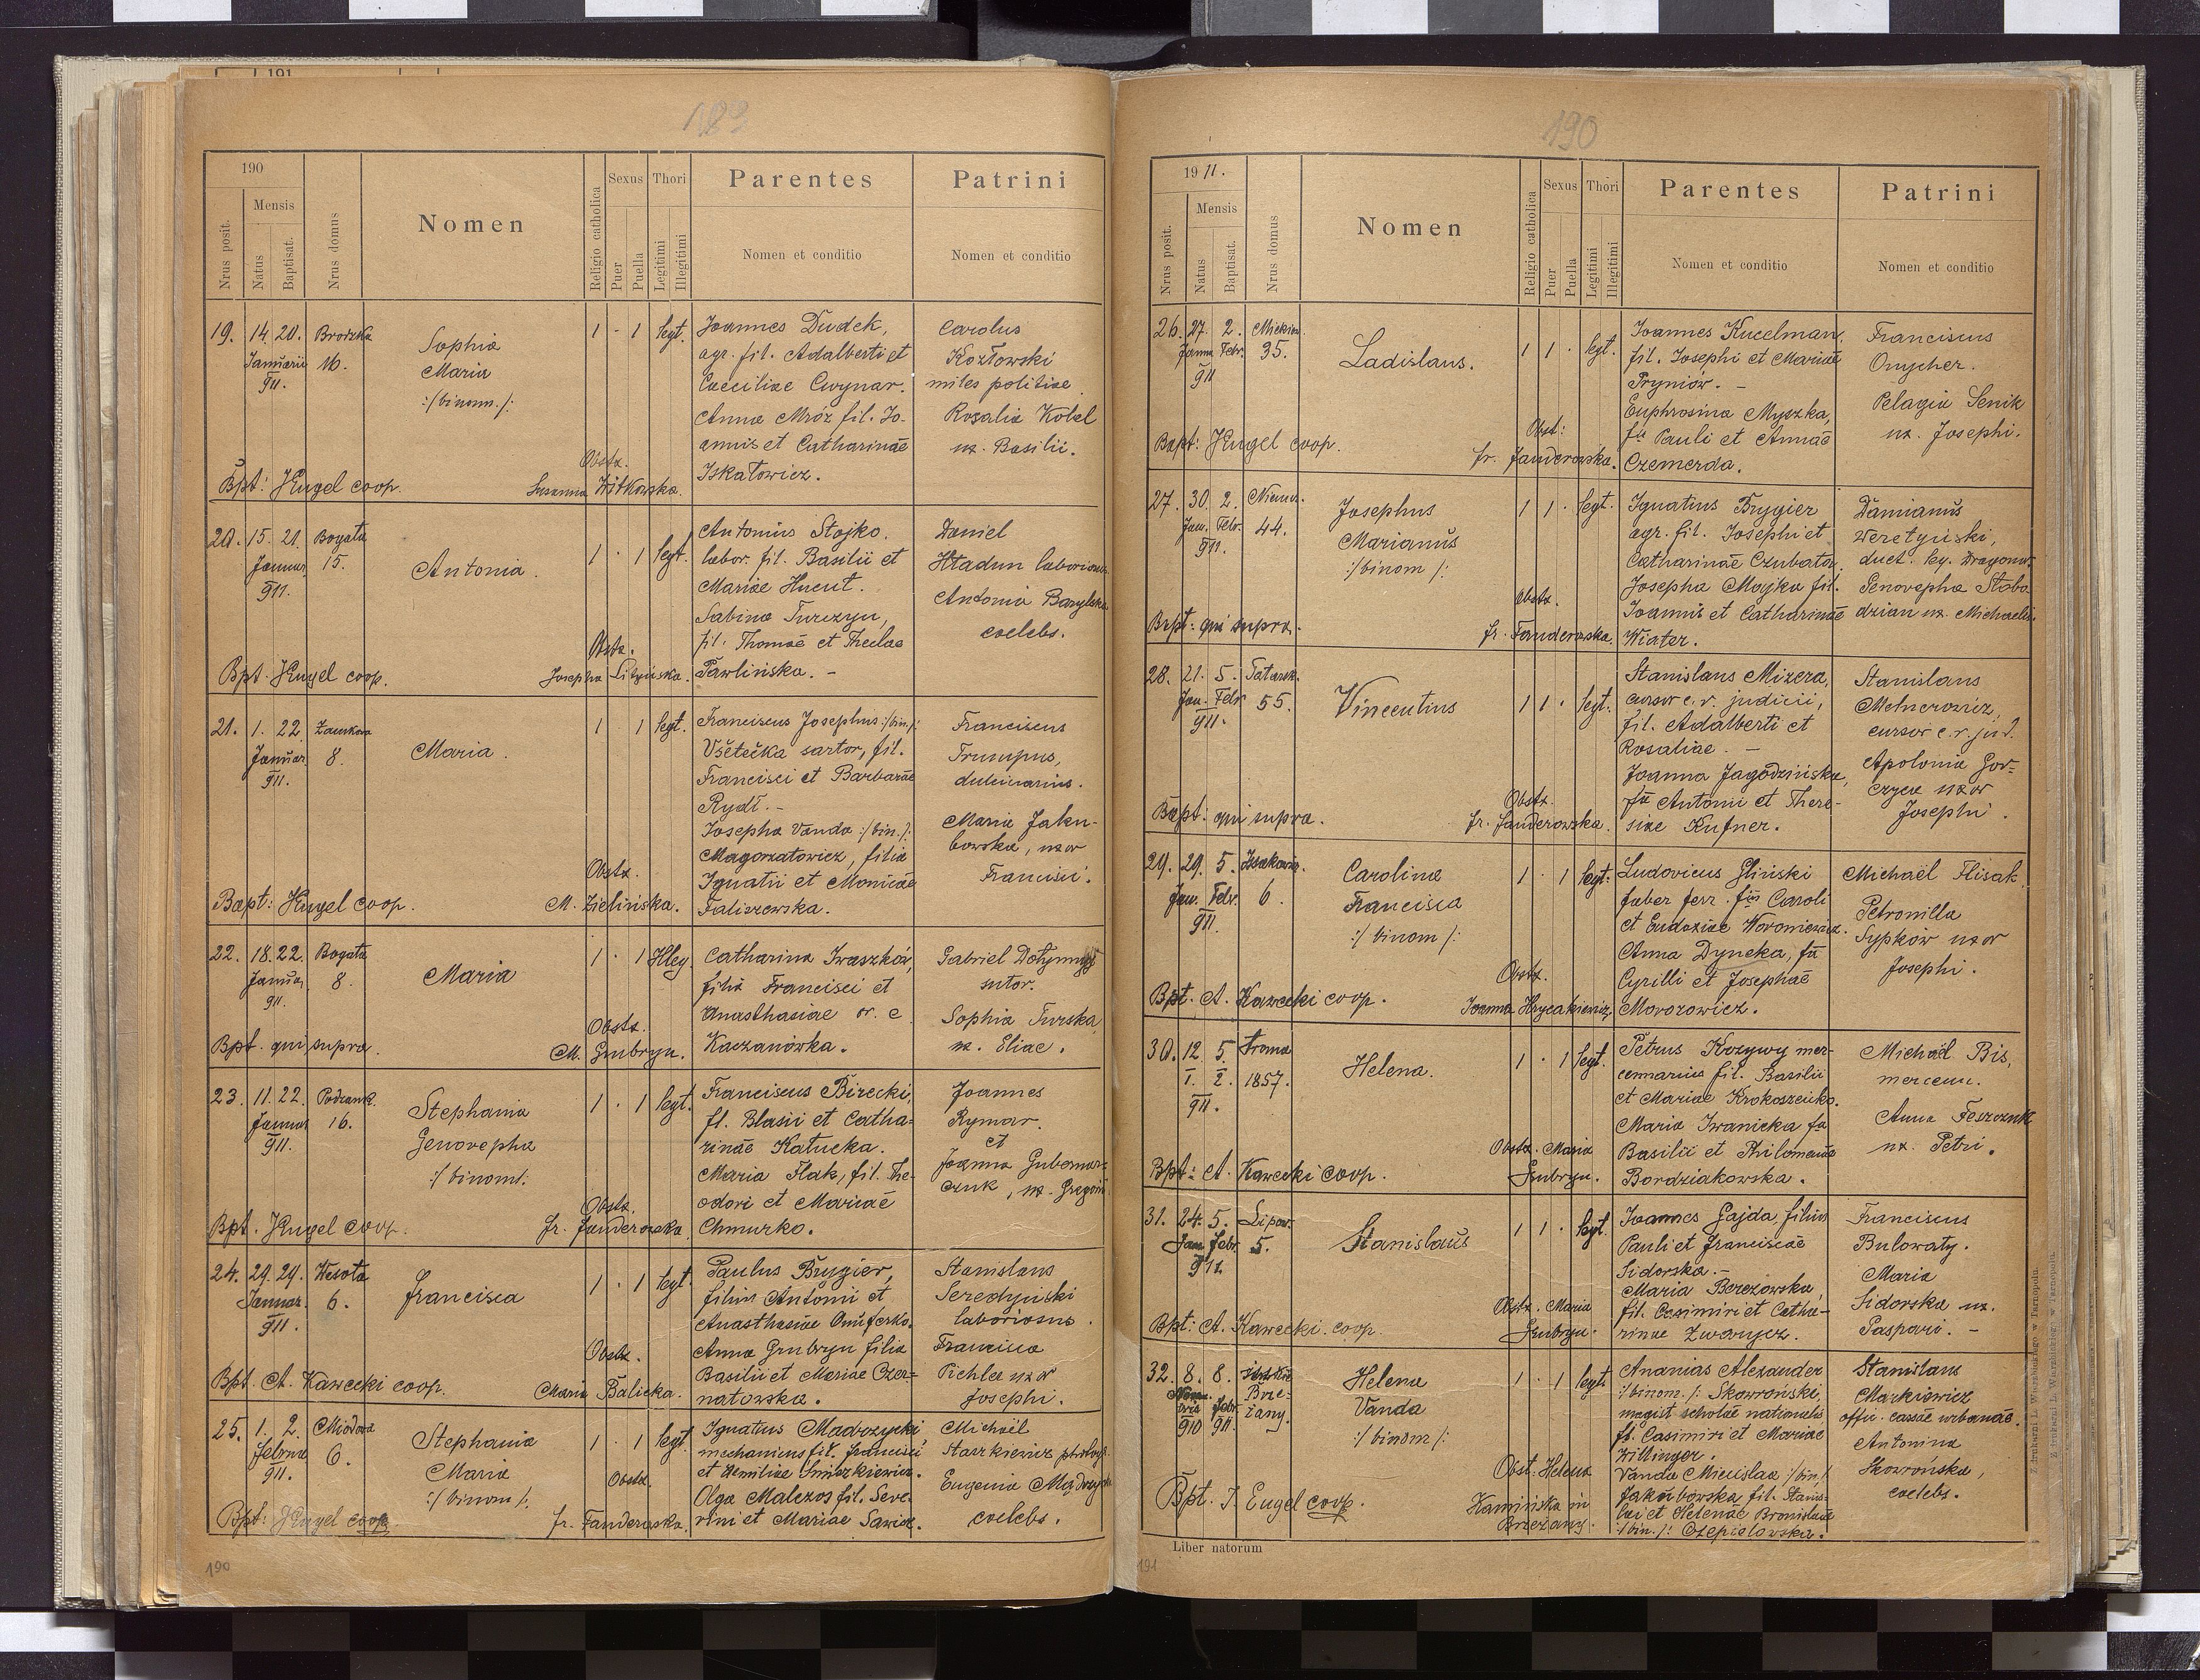 191
189
190
Mensis
Nrus posit.
Natus
Baptisat.
Nrus domus
Nomen
Religio catholica
Sexus
Puer
Puella
Thori
Legitimi
Illegitimi
Parentes
Nomen et conditio
Patrini
Nomen et conditio
19. 14. 20. Brodzka
Januarii 16.
911.
Sophia
Maria
:/binom./:
1 - 1 legt.
Joannes Dudek,
agr. fil. Adalberti et
Caeciliae Cwynar.
Anna Mróz fil. Jo-
annis et Catharinae
Iskatowicz.
Carolus
Kozłowski
miles politiae
Rosalia Kobel
ux. Basilii.
Obstx.
Susanna Witkowska.
Bpt: J Engel coop.
20. 15. 21. Bogata
Januar. 15.
911.
Antonia.
1 . 1 legt.
Antonius Stojko.
labor. fil. Basilii et
Mariae Hucut.
Sabina Turczyn,
fil. Thomae et Theclae
Pawlińska. -
Daniel
Hładun laboriosus
Antonia
coelebs.
Obstx.
Josepha
Bpt. J Engel coop.
21. 1. 22. Zamkowa
Januar. 8.
911.
Maria.
1 1 legt.
Franciscus Josephus :/bin./:
Všetečka sartor, fil.
Francisci et Barbarae
Rydl. -
Josepha Vanda :/bin./:
Magorzatowicz, filia
Ignatii et Monicae
Faliszewska.
Franciscus
Trumpus,
dulciarius.
Maria Jaku-
bowska, uxor
Francisci.
Obstx.
M. Zielińska.
Bapt: J Engel coop.
22. 18. 22. Bogata
Januar. 8.
911.
Maria
1 . 1 Illeg.
Catharina Iwaszków,
filia Francisci et
Anasthasiae
Kaczanówka.
Gabriel
sutor.
Sophia Turska
ux. Eliae.
Obstx.
M. Grubryn.
Bpt. qui supra.
23. 11. 22. Podzamk.
Januar 16.
911.
Stephania
Genovepha
:/binom/:
1 . 1 legt.
Franciscus Birecki,
fl. Blasii et Catha-
rinae Katucka.
Maria Flak, fil. The-
odori et Mariae
Chmurko.
Joannes
Rymar.
et
Joanna Gubernar-
czuk, ux. Gregorii
Obstx.
Fr. Fanderowska.
Bpt. J Engel coop.
24. 29. 29. Wesoła
Januar. 6.
911.
Francisca
1 . 1 legt.
Paulus Brygier,
filius Antonii et
Anasthasiae Onuferko.
Anna Grubryn filia
Basilii et Mariae Czer-
natowska.
Stanislaus
Seredyński
laboriosus.
Francisca
Pichler uxor
Josephi.
Obstx.
Maria Balicka.
Bpt. A. Kawecki coop.
25. 1. 2. Miodowa
Februar 6.
911.
Stephania
Maria
:/binom/:
1 . 1 legt.
Ignatius Madrzycki,
mechanicus fil. Francisci
et Aemiliae Śnieszkiewicz.
Olga Malczos fil. Seve-
rini et Mariae Sawick.
Michaël
Staszkiewicz
Eugenia
coelebs.
Obstx.
Fr. Fanderowska.
Bpt: J Engel coop.
190
190
1911.
Mensis
Nrus posit.
Natus
Baptisat.
Nrus domus
Nomen
Religio catholica
Sexus
Puer
Puella
Thori
Legitimi
Illegitimi
Parentes
Nomen et conditio
Patrini
Nomen et conditio
26. 27. 2. Mickiew.
Janua. Febr. 35.
911
Ladislaus.
1 1 . legt.
Joannes Kucelman,
fil. Josephi et Mariae
Pryniów. -
Euphrosina Myszka,
fa Pauli et Annae
Czemerda.
Franciscus
Onycher.
Pelagia Senik
ux. Josephi.
Obst:
Fr. Fanderowska.
Bapt: J Engel coop.
27. 30. 2.
Jan. Febr. 44.
911.
Josephus
Marianus
:/binom/:
1 1 . legt.
Ignatius Brygier
agr. fil. Josephi et
Catharinae Czubata.
Josepha Mojka fil.
Joannis et Catharinae
Wiater.
Damianus
Weretyński,
duct. Dragonor.
Genovepha Słobo-
dzian ux. Michaelis
Obstx.
Fr. Fanderowska.
Bapt: qui supra.
28. 21. 5. Tatarsk.
Jan. Febr 55.
911.
Vincentius
1 1 . legt.
Stanislaus Mizera,
cursor c. r. judicii,
fil. Adalberti et
Rosaliae. -
Joanna Jagodzińska,
fa Antonii et There-
siae Kufner.
Stanislaus
Melnerowicz,
cursor c. r. jud.
Apolonia Gor-
czyca uxor
Josephi.
Obstx.
Fr. Fanderowska.
Bapt: qui supra.
29. 29. 5. Issakowicz.
Jan. Febr. 6.
911.
Carolina
Francisca
:/binom/:
1 . 1 legt.
Ludovicus Gliński
faber ferr. Caroli
et Eudoxiae Woroniewicz.
Anna Dyneka, fa
Cyrilli et Josephae
Morozowicz.
Michaël Flisak
Petronilla
Sypków uxor
Josephi.
Obstx.
Joanna Hrycakiewicz
Bpt. A. Kawecki coop.
30. 12. 5. Brama
I. 2. 1857.
911.
Helena.
1 . 1 legt.
Petrus Kozywy mer-
cennarius fil. Basilii
et Mariae Krokoszenko.
Maria Iwanicka fa
Basilii et Philomenae
Bordziakowska.
Michaël Bis,
mercenn.
Anna Feszczuk
ux. Petri.
Obstx. Maria
Grubryn.
Bpt: A. Kawecki coop.
31. 24. 5. Lipow.
Jan. Febr. 5.
911.
Stanislaus
1 1 . legt.
Joannes Gajda, filius
Pauli et Franciscae
Sidorska. -
Maria Berezowska,
fil. Casimiri et Catha-
rinae Zwarycz.
Franciscus
Bulowaty.
Maria
Sidorska ux.
Paspari. -
Obstx. Maria
Grubryn.
Bpt: A. Kawecki. coop.
32. 8. 8.
Brze-
żany.
Febr.
910 911.
Helena
Vanda
:/binom/:
1 . 1 legt.
Ananias Alexander
:/binom./: Skowroński,
magist scholae nationalis
fl. Casimiri et Mariae
Willinger.
Vanda Mieczislaa :/bin./:
Jakubowska fil. Stanis-
lai et Helenae Bronislavae
:/bin./: Czepielowska.
Stanislaus
Markiewicz
offic. cassae urbanae.
Antonina
Skowrońska,
coelebs.
Obst. Helena
Kamińska in
Brzeżany.
Bpt. J. Engel coop.
Liber natorum
191
Z drukarni L. Wierzbickiego w Tarnopolu.